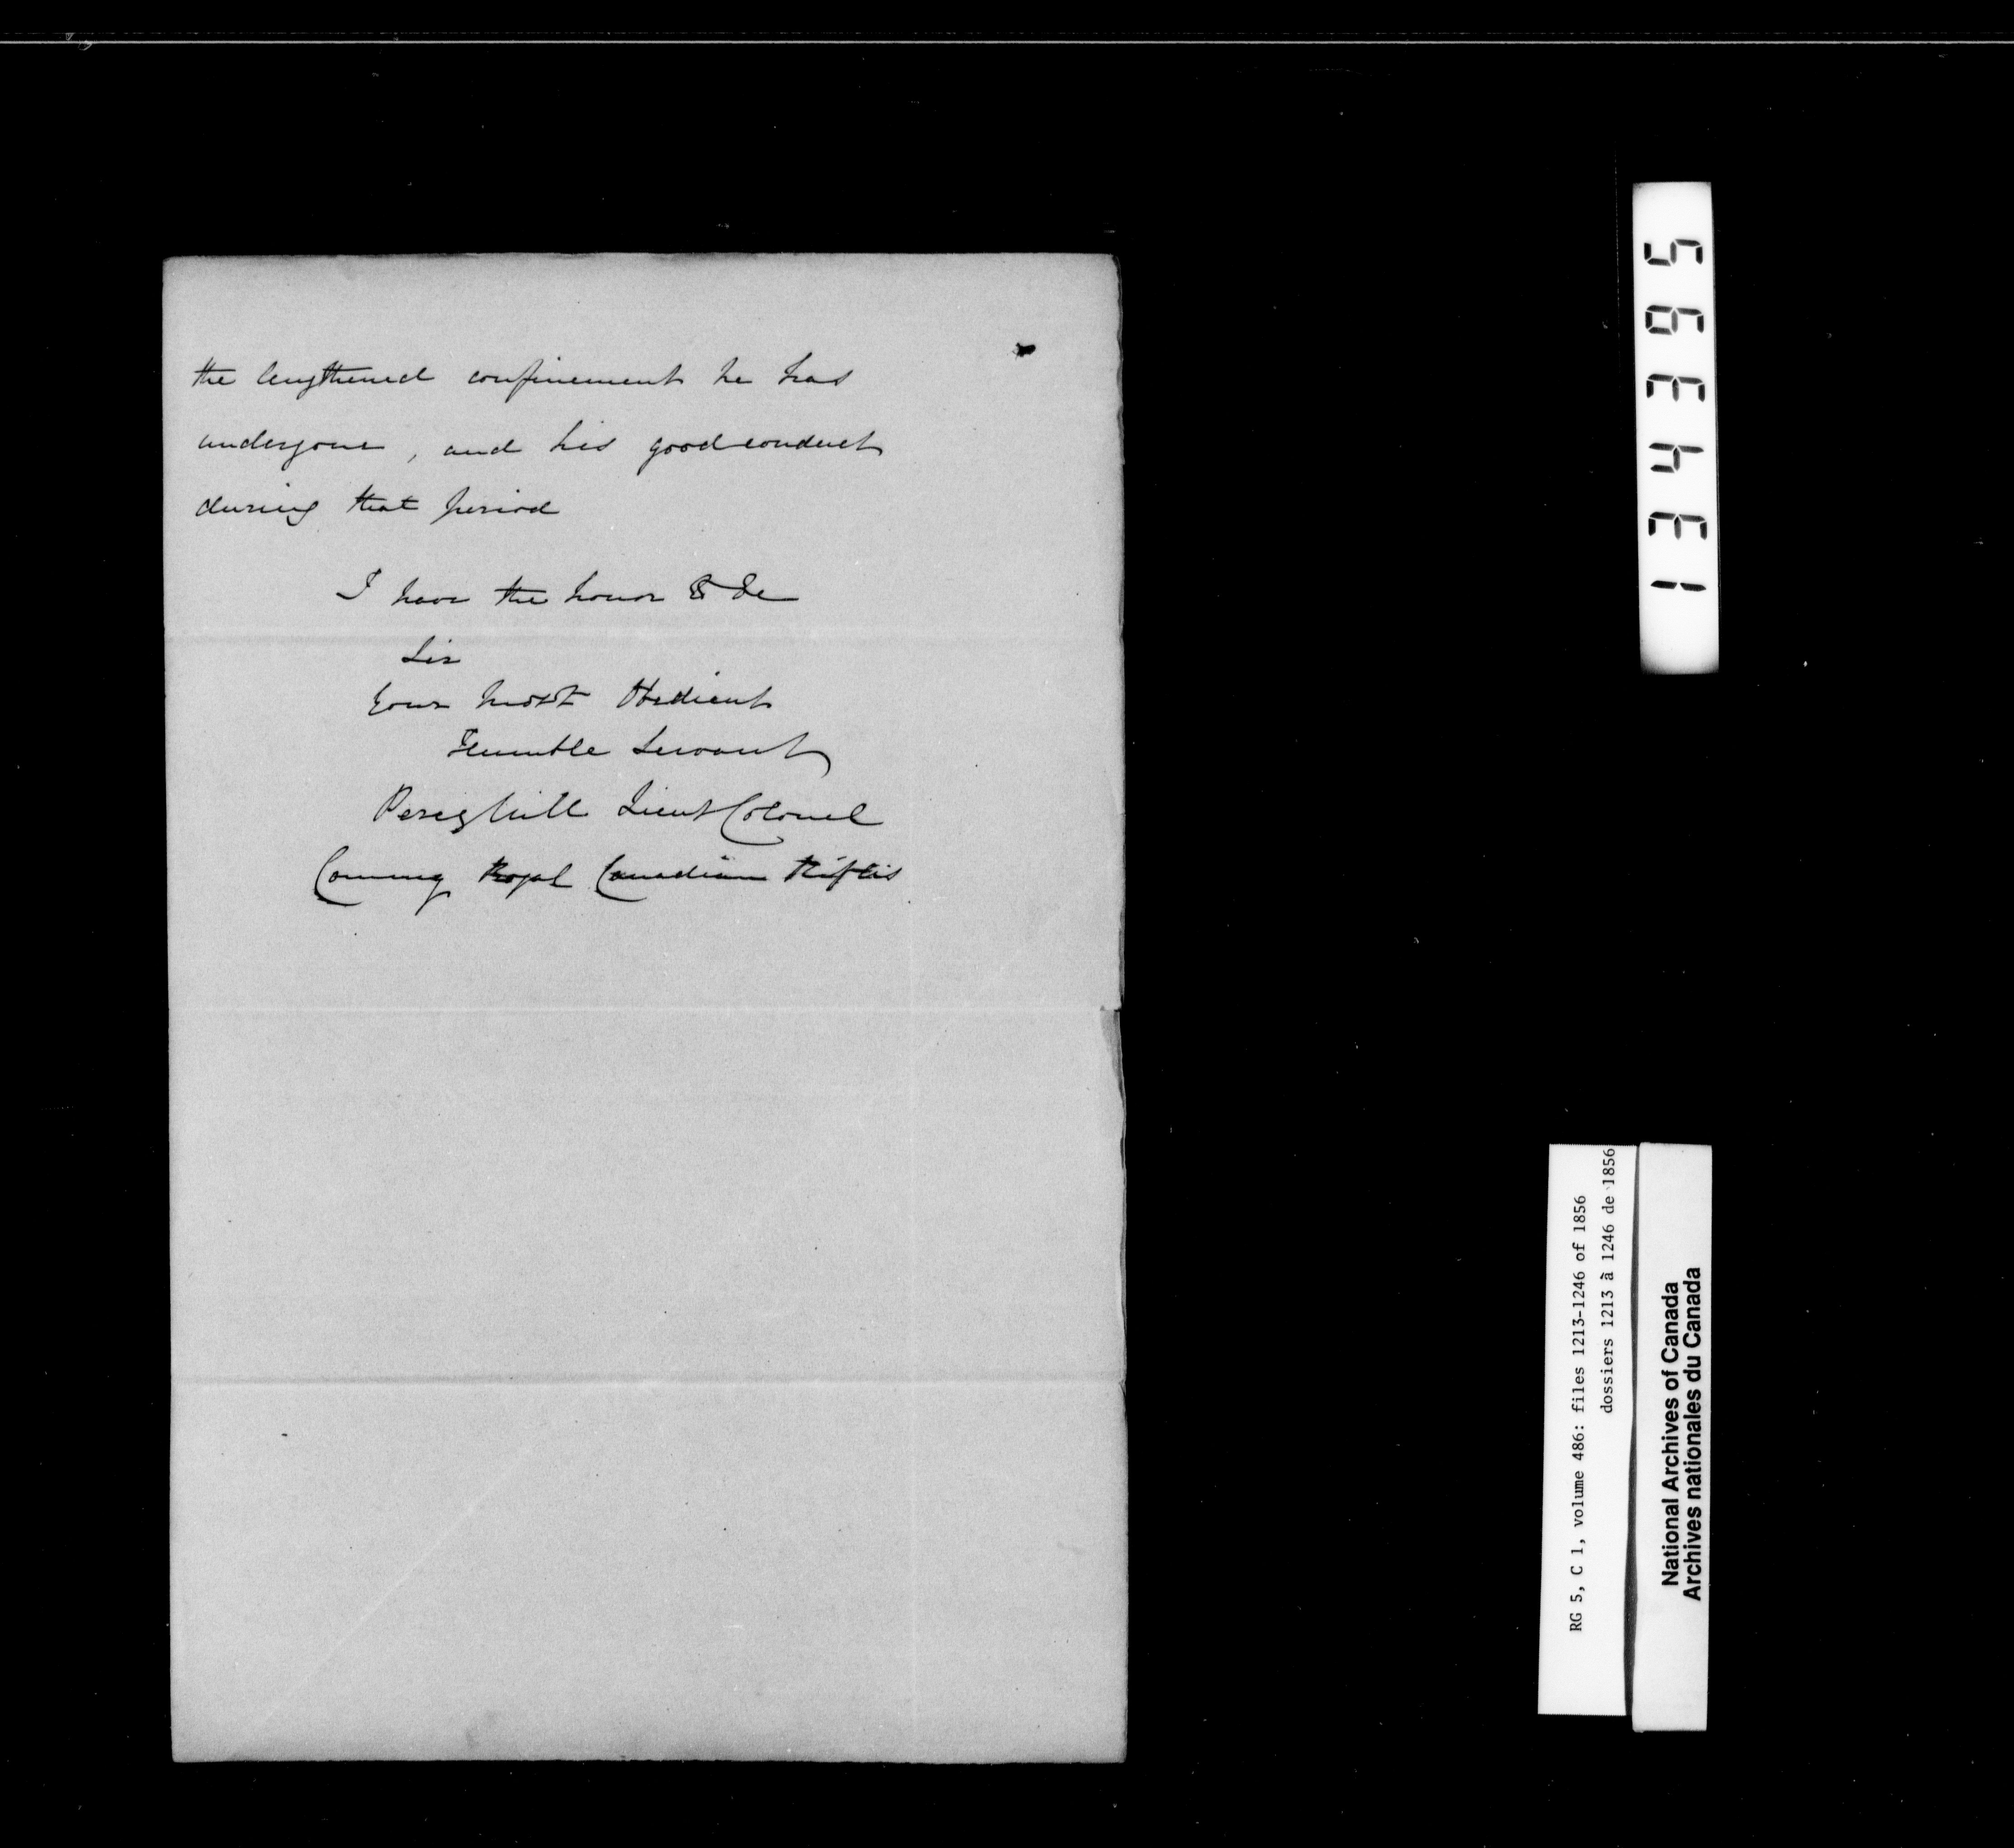 the lengthened confinement he has
undergone, and his good conduct
during that period
I have the honor to be
Sir
Your Most Obedient
Humble Servant
Percy Hill Lieut Colonel
Commg Royal Canadian Rifles
134395
RG 5, C 1, volume 486: files 1213-1246 of 1856
dossiers 1213 à 1246 de 1856
National Archives of Canada
Archives nationales du Canada